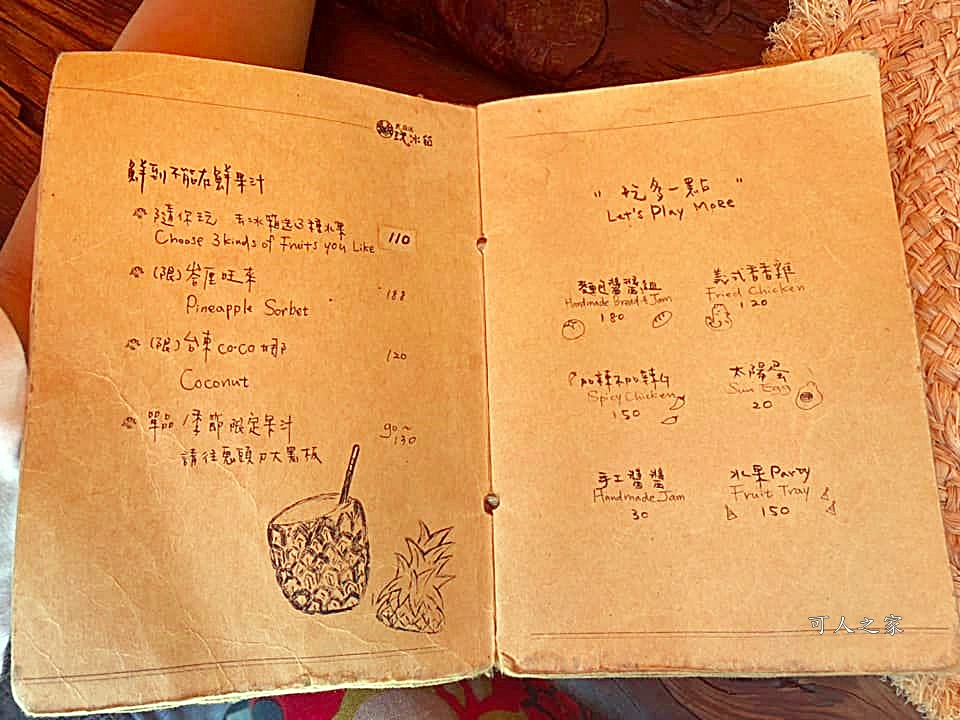 玩冰箱
鮮到不能在鮮果汁
隨你玩 去冰箱選3種水果 110
Choose 3 kinds of Fruits you Like
(限)峇厘旺來 188
Pineapple Sorbet
(限)台東 co.co 椰那 120
Coconut
單品/季節限定果汁 90~130
請往電頭大黑板
"玩多一點"
Let's Play More
麵包醬醬組
Handmade Bread & Jam
180
美式香香雞
Fried Chicken
120
加辣不加辣
Spicy Chicken
150
太陽蛋
Sun Egg
20
手工醬醬
Handmade Jam
30
水果Party
Fruit Tray
150
可人之家